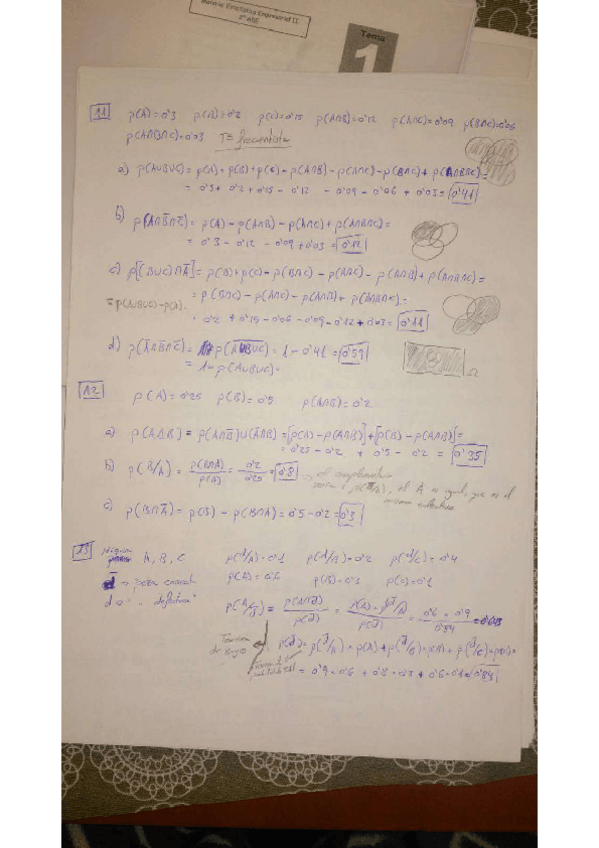 Estadística Empresarial II
2º ADE
Tema
1
11 p(A)=0'3 p(B)=0'2 p(C)=0'15 p(A∩B)=0'12 p(A∩C)=0'09 p(B∩C)=0'06
p(A∩B∩C)=0'03 frecuentista
a) p(A∪B∪C) = p(A) + p(B) + p(C) - p(A∩B) - p(A∩C) - p(B∩C) + p(A∩B∩C) =
= 0'3 + 0'2 + 0'15 - 0'12 - 0'09 - 0'06 + 0'03 = 0'41
b) p(A∩B̄∩C̄) = p(A) - p(A∩B) - p(A∩C) + p(A∩B∩C) =
= 0'3 - 0'12 - 0'09 + 0'03 = 0'12
c) p[(B∪C)∩Ā] = p(B) + p(C) - p(B∩C) - p(A∩C) - p(A∩B) + p(A∩B∩C) =
= p(A∪B∪C) - p(A). = p(B∩C) - p(A∩C) - p(A∩B) + p(A∩B∩C) =
= 0'2 + 0'15 - 0'06 - 0'09 - 0'12 + 0'03 = 0'11
d) p(Ā∩B̄∩C̄) = p(A∪B∪C) = 1 - 0'41 = 0'59
= 1 - p(A∪B∪C) = Ω
12 p(A) = 0'25 p(B) = 0'5 p(A∩B) = 0'2
a) p(A∆B) = p(A∩B̄)∪(Ā∩B) = [p(A) - p(A∩B)] + [p(B) - p(A∩B)] =
= 0'25 - 0'2 + 0'5 - 0'2 = 0'35
b) p(B/A) = p(B∩A)/p(A) = 0'2/0'25 = 0'8 → el complementario
sería p(B̄/A), el A es igual, que es el
mismo
c) p(B∩Ā) = p(B) - p(B∩A) = 0'5 - 0'2 = 0'3
13 A, B, C p(d/A) = 0'1 p(d/B) = 0'2 p(d/C) = 0'4
d̄ = pieza correcta p(A) = 0'6 p(B) = 0'3 p(C) = 0'1
d = " defectuosa p(A/d̄) = p(A∩d̄)/p(d̄) = p(A) · p(d̄/A)/p(d̄) = 0'6 · 0'9/0'84 = 0'643
Teorema
de Bayes p(d̄) = p(d̄/A) · p(A) + p(d̄/B) · p(B) + p(d̄/C) · p(C) =
= 0'9 · 0'6 + 0'8 · 0'3 + 0'6 · 0'1 = 0'84